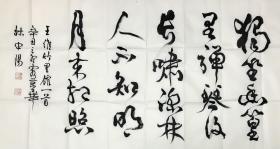 獨坐幽篁
里彈琴復
長嘯深林
人不知明
月來相照
王維竹里館一首
辛丑